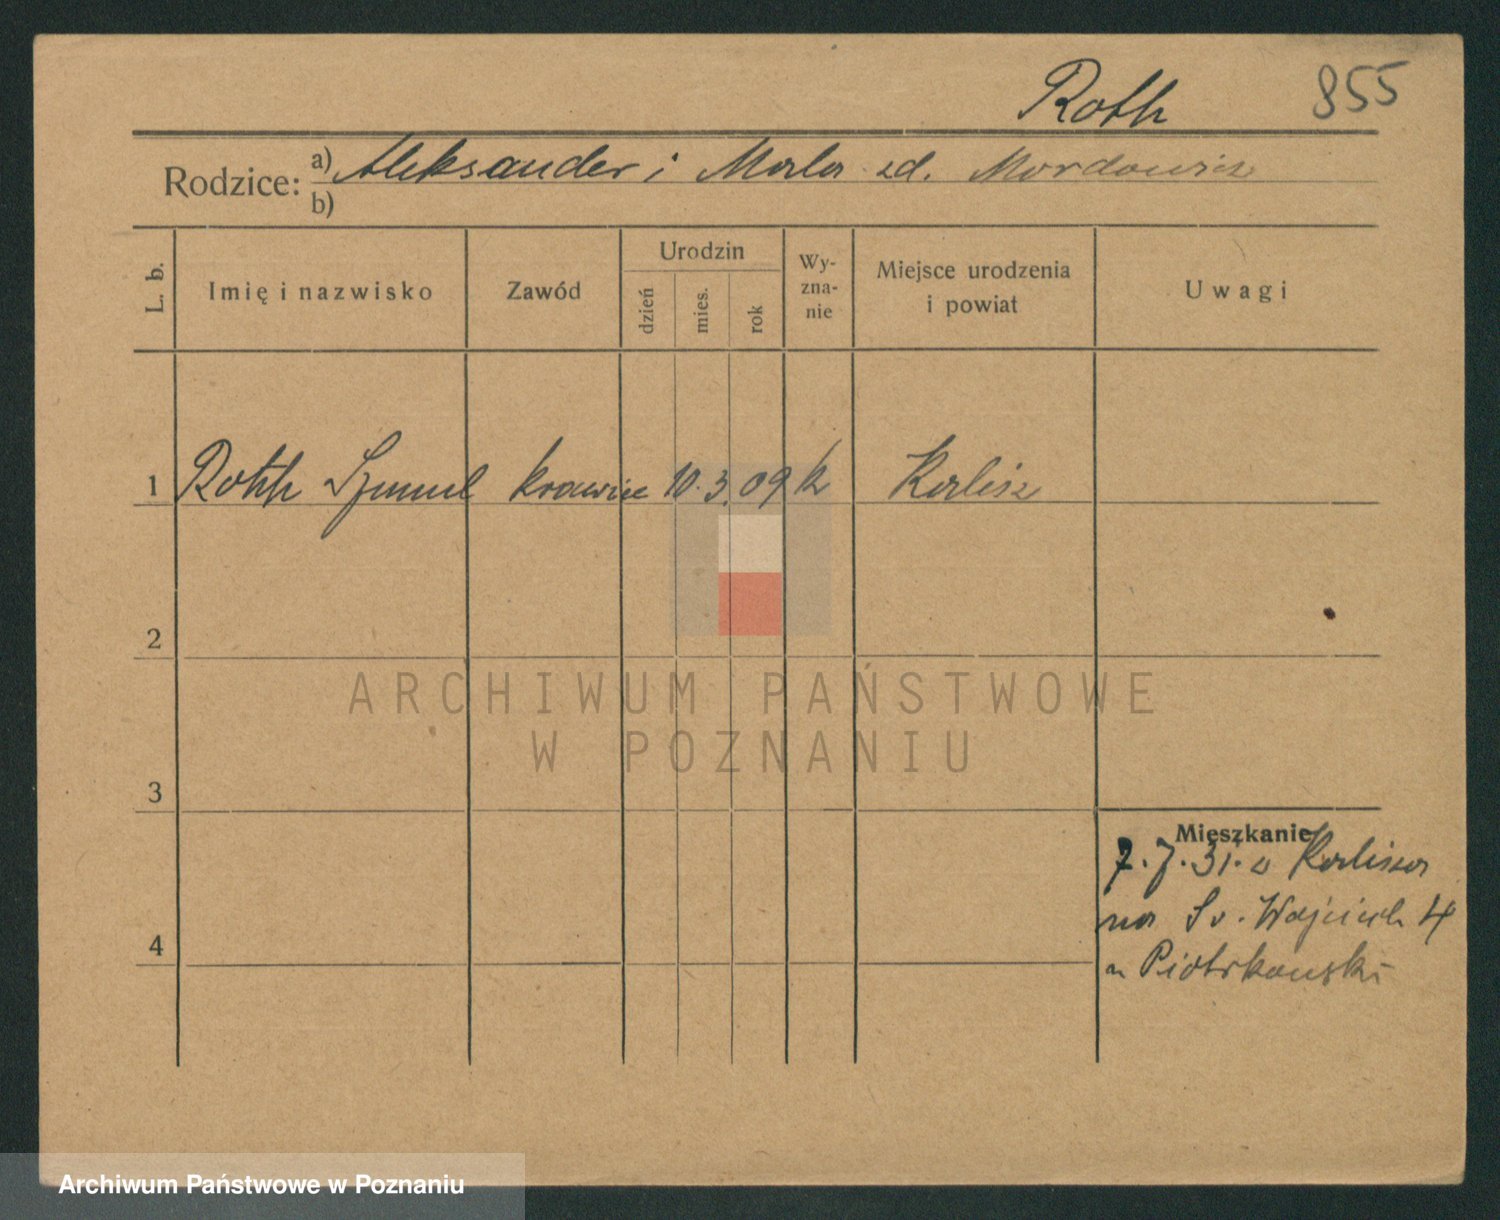 Roth 855
Rodzice: a) Aleksander i Mala zd. Mordowicz
b)
L. b. Imię i nazwisko Zawód Urodzin dzień mies. rok Wy-zna-nie Miejsce urodzenia i powiat Uwagi
1 Roth Szmul krawiec 10. 3. 09 Kalisz
2
ARCHIWUM PAŃSTWOWE
W POZNANIU
3
Mieszkanie
7. 7. 31. z Kalisza
na Św. Wojciech 4
u Piotrkowski
4
Archiwum Państwowe w Poznaniu